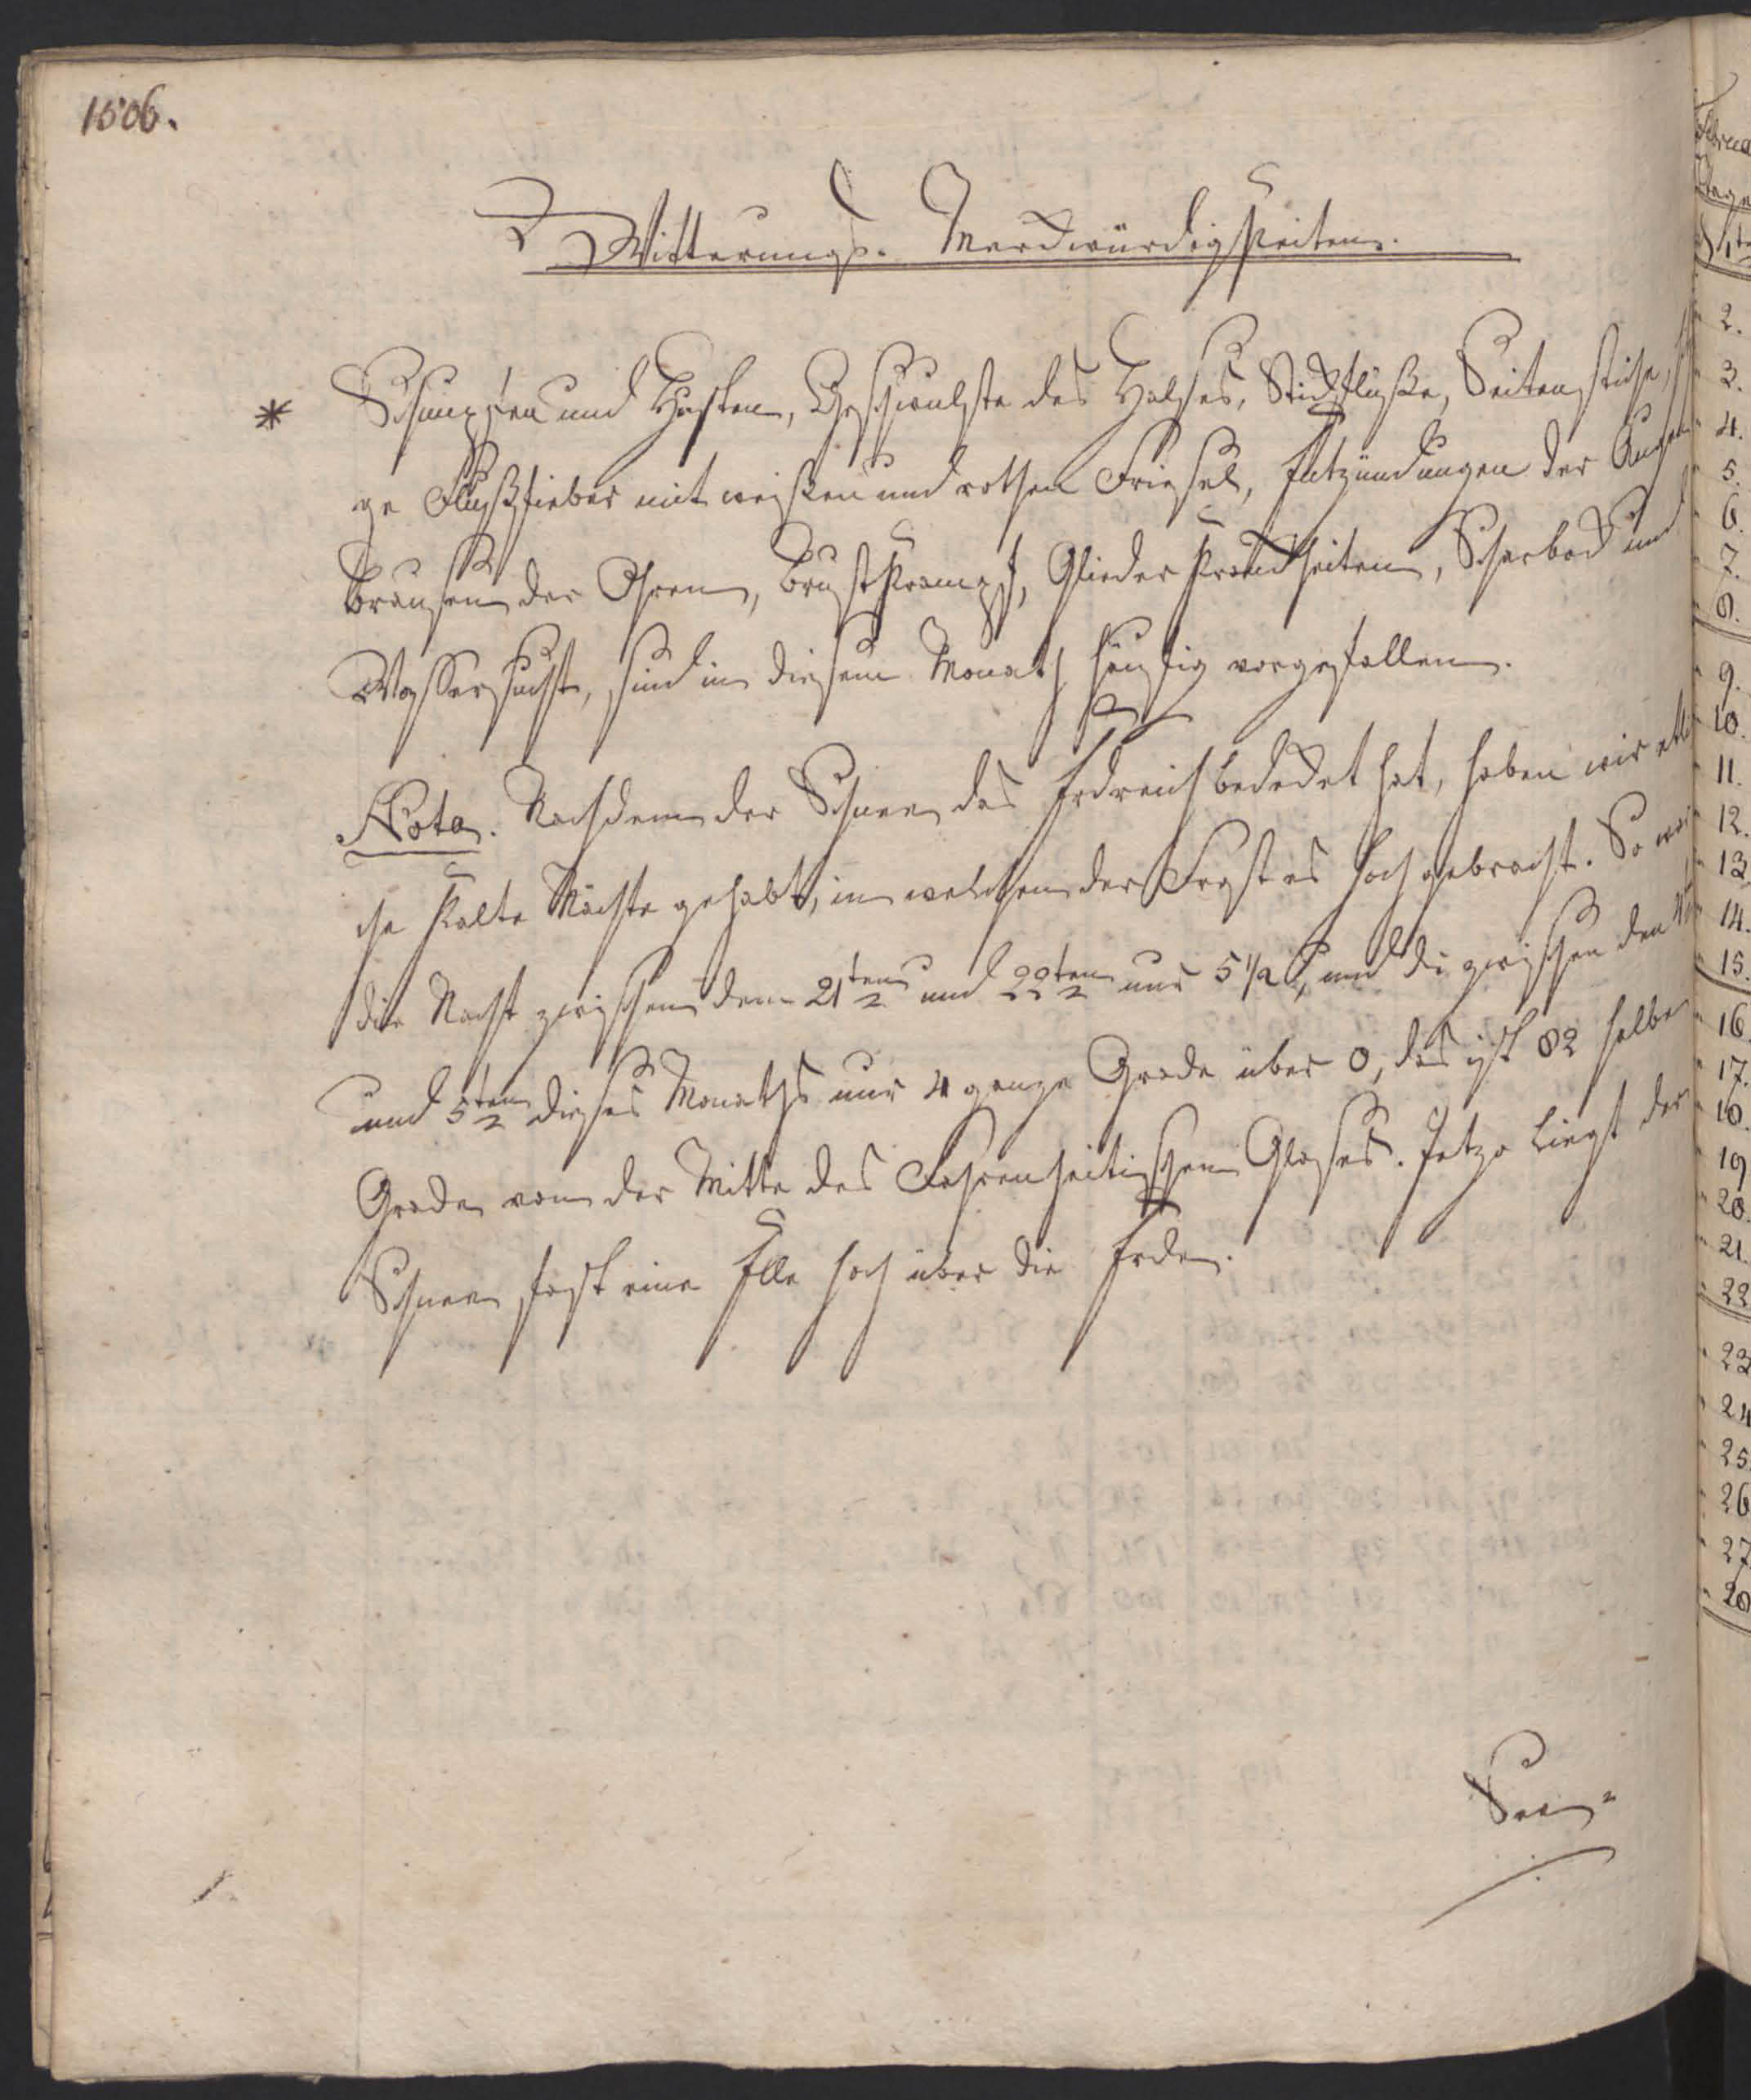 1806.
Witterungs-Merckwürdigkeiten.
* Schnupfen und Husten, Geschwulste des Halses, Stickflüsse, Seitenstiche,
ge Flußfieber mit weissen und rothen Friesel, Entzündungen der Augen
Brausen der Ohren, Brustkrampf, Gliederkranckheiten, Scharbock und
Wassersucht, sind in diesem Monath häufig vorgefallen.
Nota. Nachdem der Schnee das Erdreich bedecket hat, haben wir etli
che kalte Nächte gehabt, in welchen der Frost es hoch gebracht. So war
die Nacht zwischen dem 21ten und 22ten nur 5 1/2, und die zwischen den 4
und 5ten dieses Monaths nur 4 ganze Grade über 0, das ist 82 halbe
Grade von der Mitte des Fahrenheitischen Glases. Jetzo liegt der
Schnee fast eine Elle hoch über die Erde.
See-
Februa
Tage
1te
2.
3.
4.
5.
6.
7.
8.
9.
10.
11.
12.
13
14.
15.
16.
17.
18.
19
20.
21.
22
23
24
25.
26
27
28